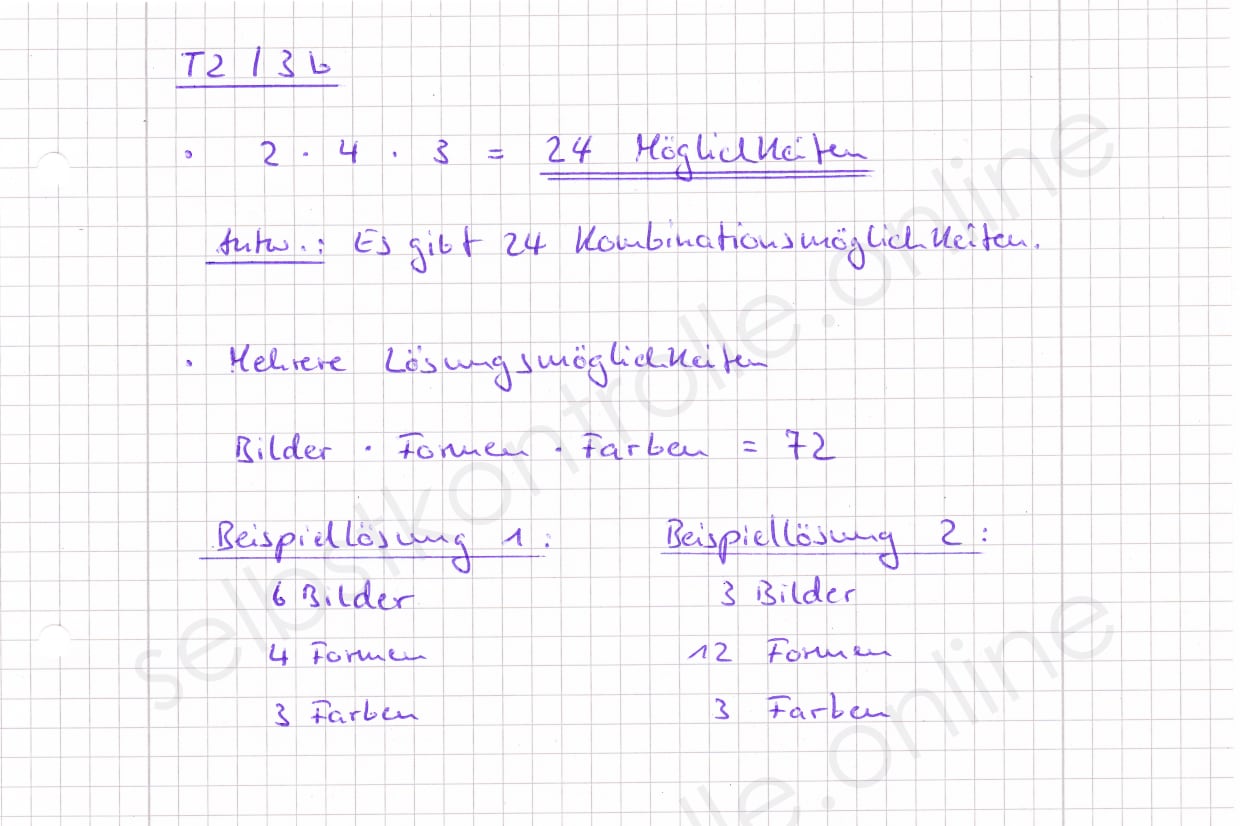 T2 / 3 b
• 2 · 4 · 3 = 24 Möglichkeiten
Antw.: Es gibt 24 Kombinationsmöglichkeiten.
• Mehrere Lösungsmöglichkeiten
Bilder · Formen · Farben = 72
Beispiellösung 1: Beispiellösung 2:
6 Bilder 3 Bilder
4 Formen 12 Formen
3 Farben 3 Farben
selbstkontrolle.online
lle.online